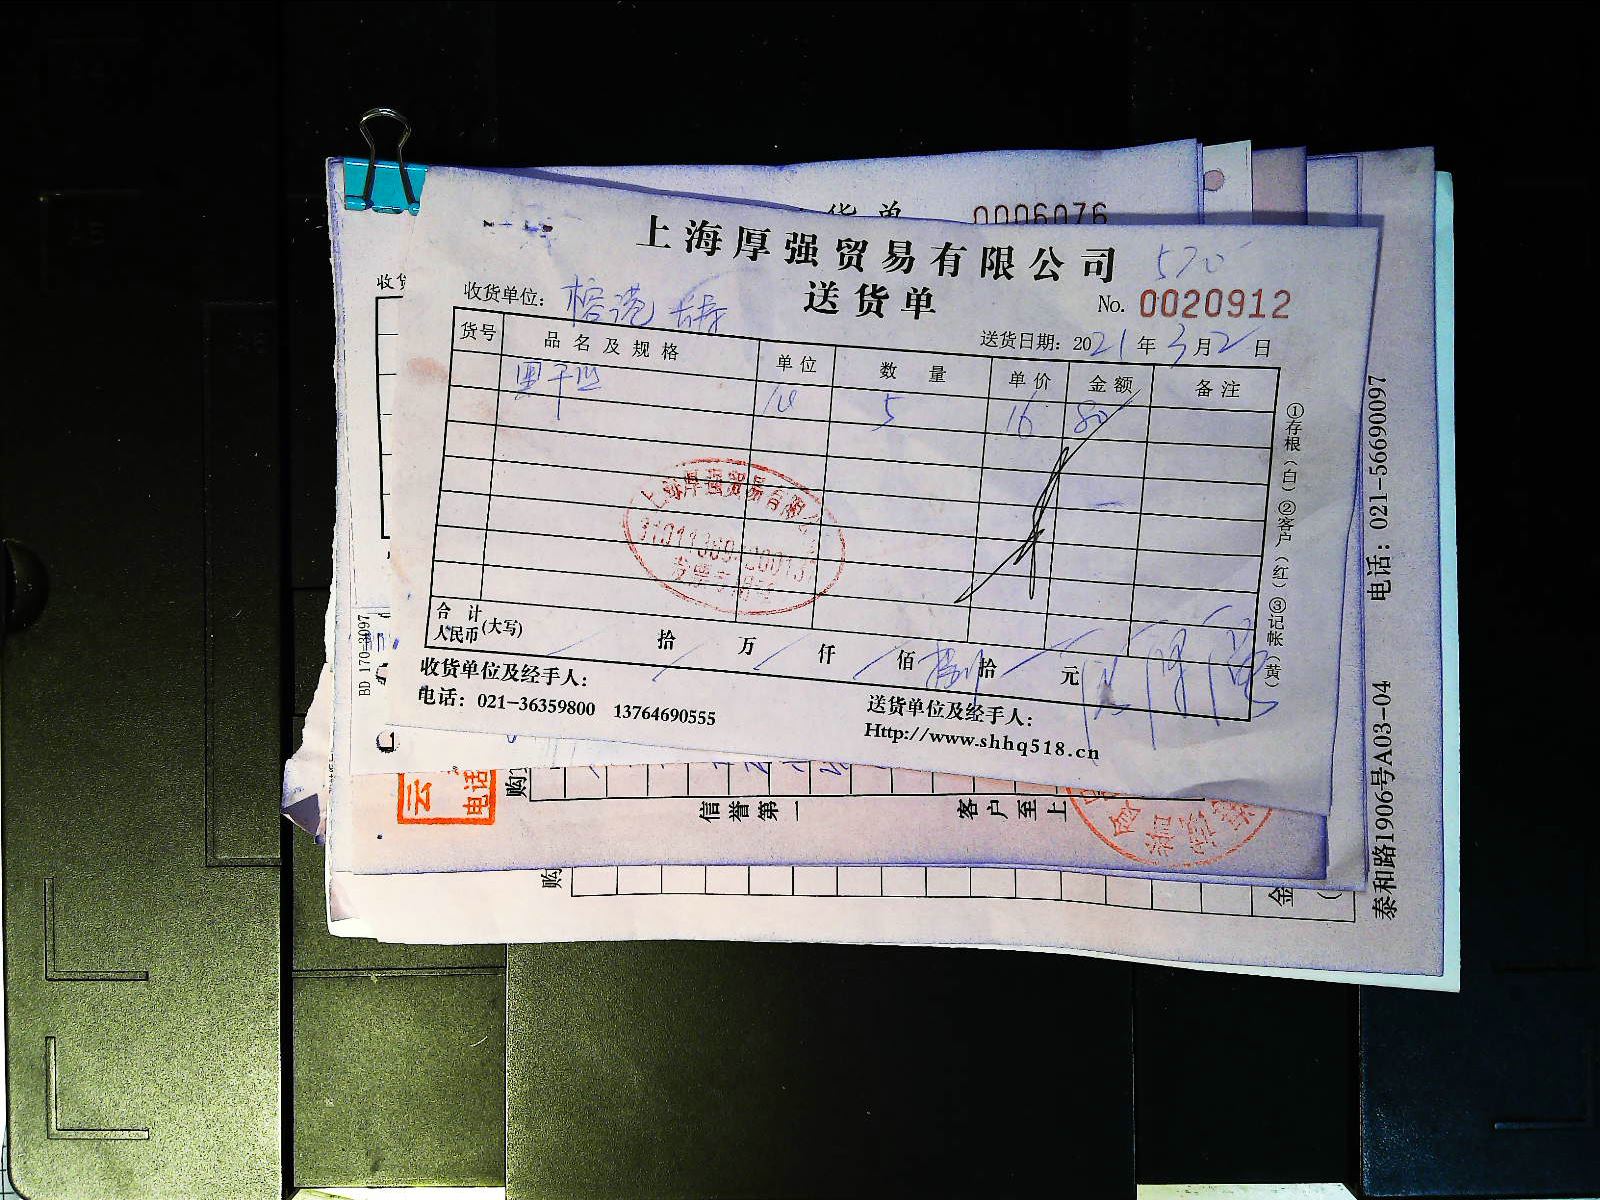 货单 0006076
上海厚强贸易有限公司
送货单
No. 0020912
收货单位：榕港
送货日期：2021年3月2日
货号 品名及规格 单位 数量 单价 金额 备注
5 16 80
上海厚强贸易有限公
发票专用章
合计
人民币(大写) 拾 万 仟 佰 捌拾 元
收货单位及经手人：
电话：021-36359800 13764690555
送货单位及经手人：
Http://www.shhq518.cn
①存根（白）②客户（红）③记帐（黄）
收货
BD 170-3097
电话
购
信誉第一 客户至上
购
金
泰和路1906号A03-04 电话：021-56690097